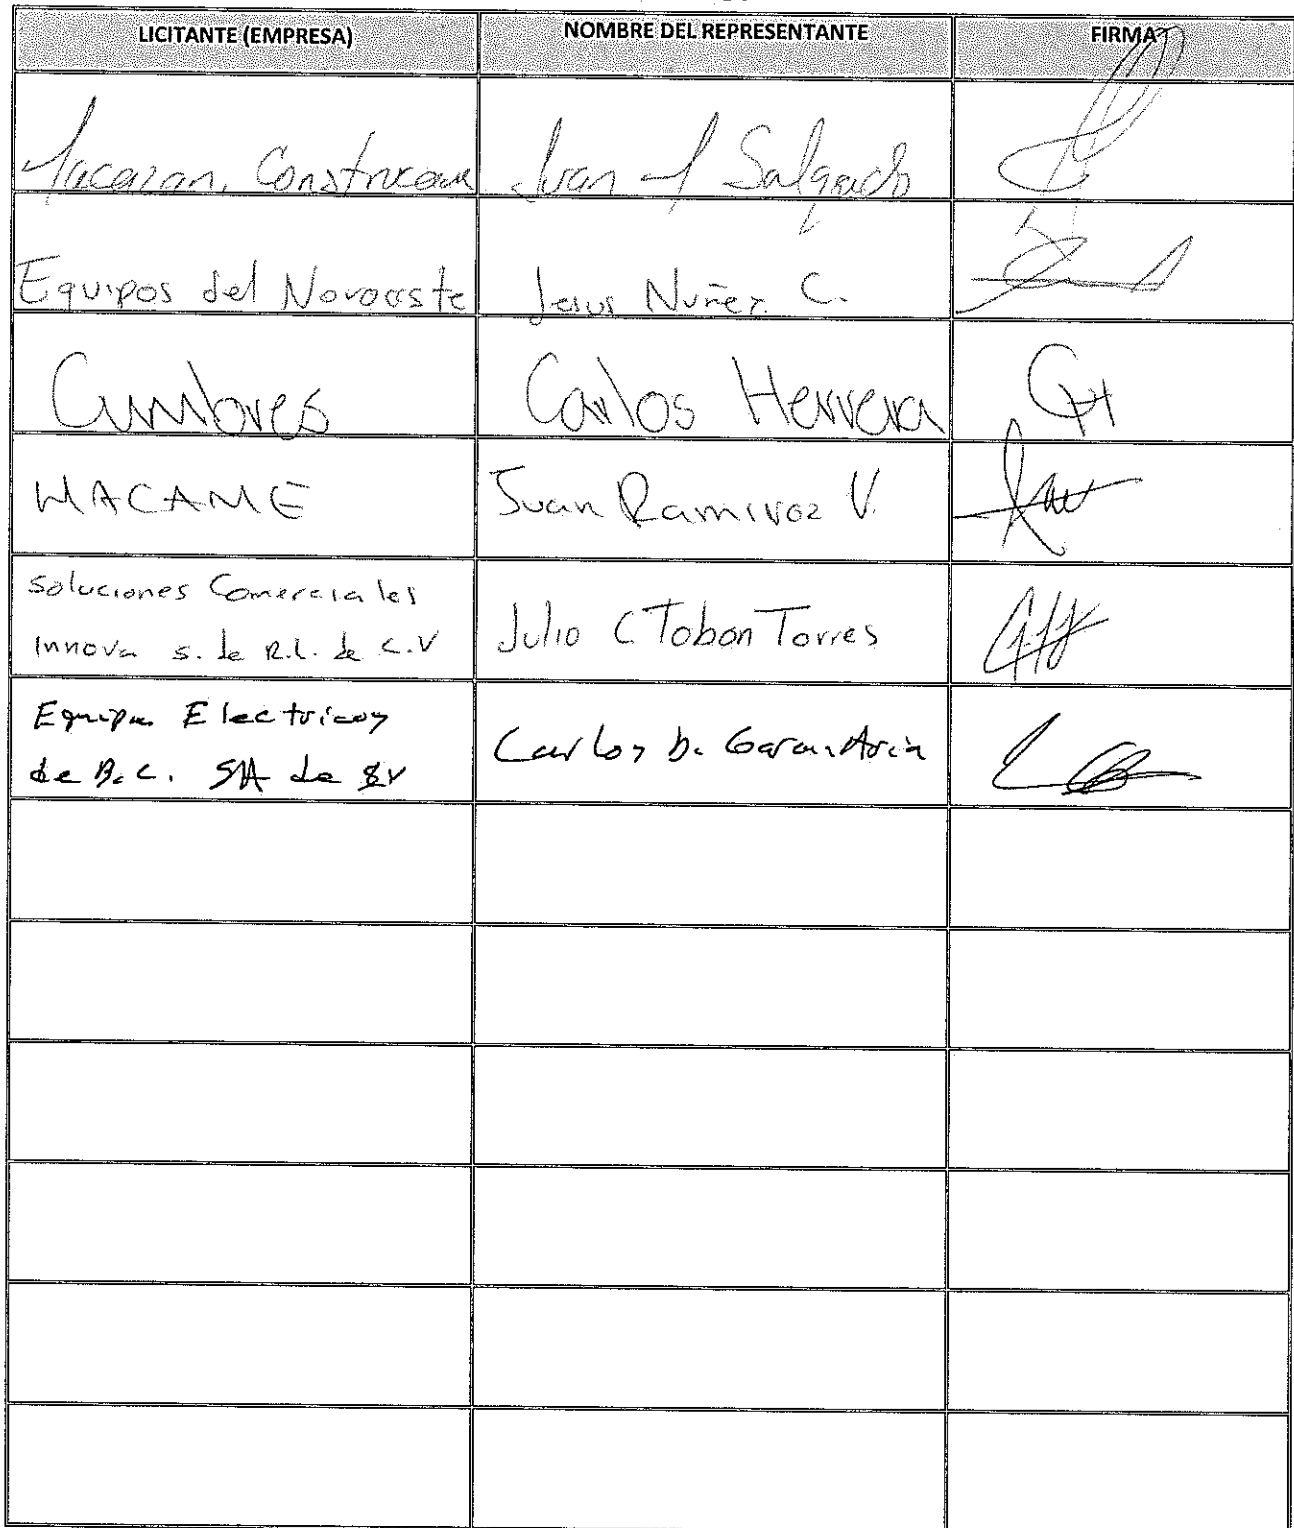 LICITANTE (EMPRESA) NOMBRE DEL REPRESENTANTE FIRMA
Juan Salgado
Equipos del Noroeste Jesus Nuñez C.
Cumbres Carlos Herrera
MACAME Juan Ramirez V.
Soluciones Comerciales
Innova S. de R.L. de C.V Julio C Tobon Torres
Electricos
de B.C. SA de CV Carlos D.